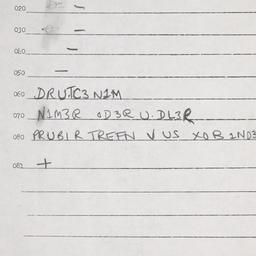 020
030 —
040 —
050 —
060 DRUTC3 N1M
070 N1M3R OD3R U.DL3R
080 PRUBIR TREFN V US XOB 1ND3
082 +